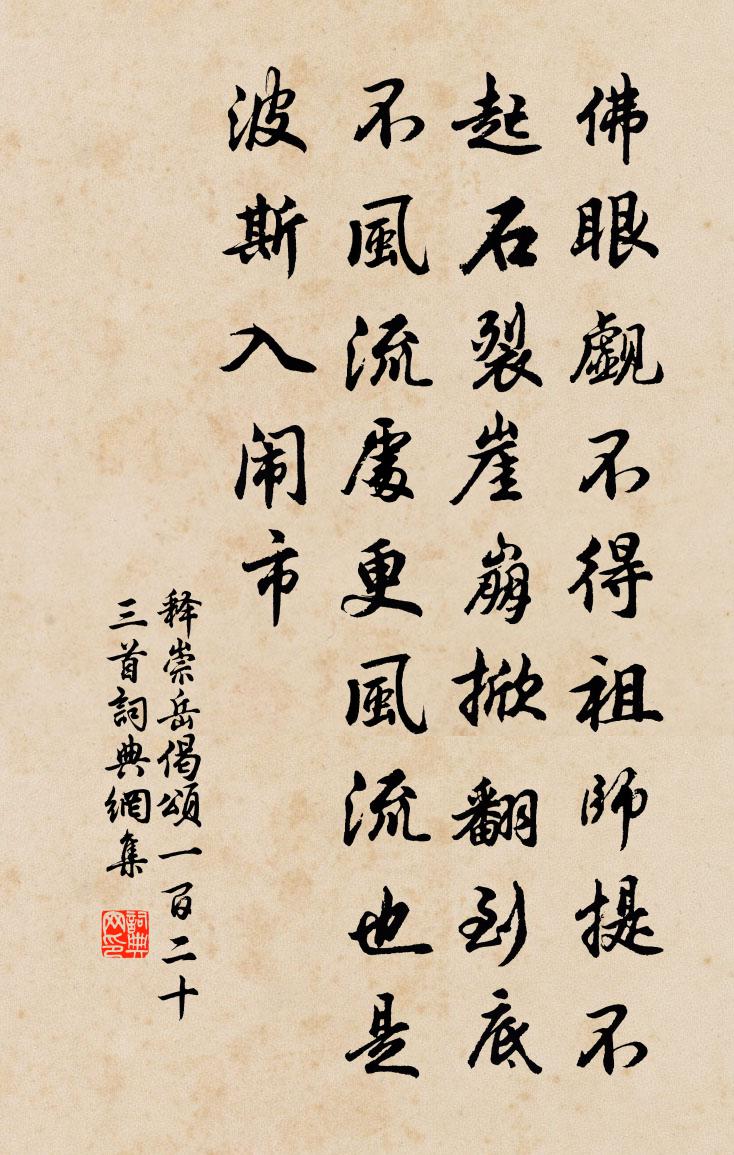 佛眼覷不得祖師提不
起石裂崖崩掀翻到底
不風流處更風流也是
波斯入闹市
释崇岳偈頌一百二十
三首詞典網集
詞典网印